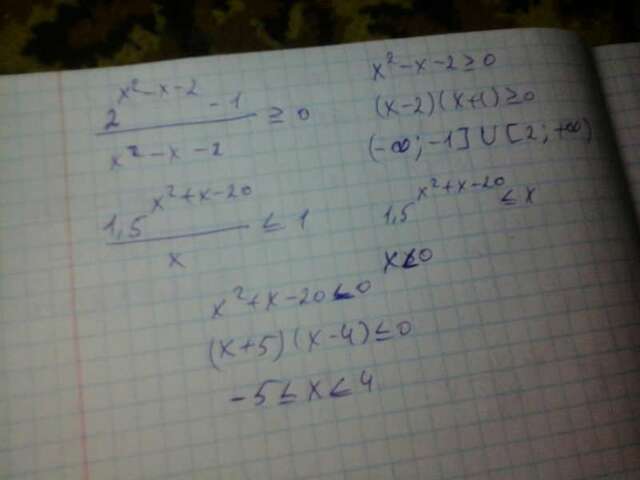 2^(x²-x-2) - 1 / x²-x-2 ≥ 0
x²-x-2≥0
(x-2)(x+1)≥0
(-∞; -1] ∪ [2; +∞)
1,5^(x²+x-20) / x ≤ 1
1,5^(x²+x-20) ≤ x
x<0
x²+x-20≤0
(x+5)(x-4)≤0
-5≤x≤4